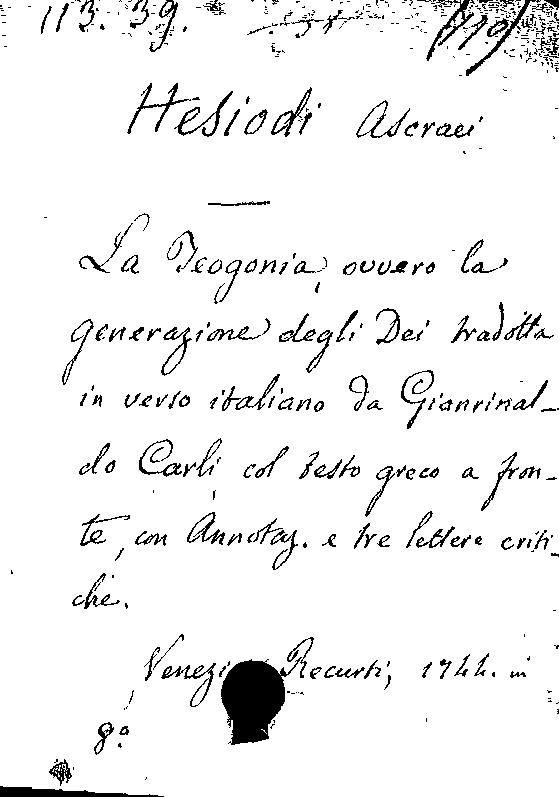 113. 39.
(119)
Hesiodi Ascraei
La Teogonia, ovvero la
generazione degli Dei tradotta
in verso italiano da Gianrinal-
do Carli col testo greco a fron-
te, con Annotaz. e tre lettere criti-
che.
Venezi Recurti, 1744. in
8.º